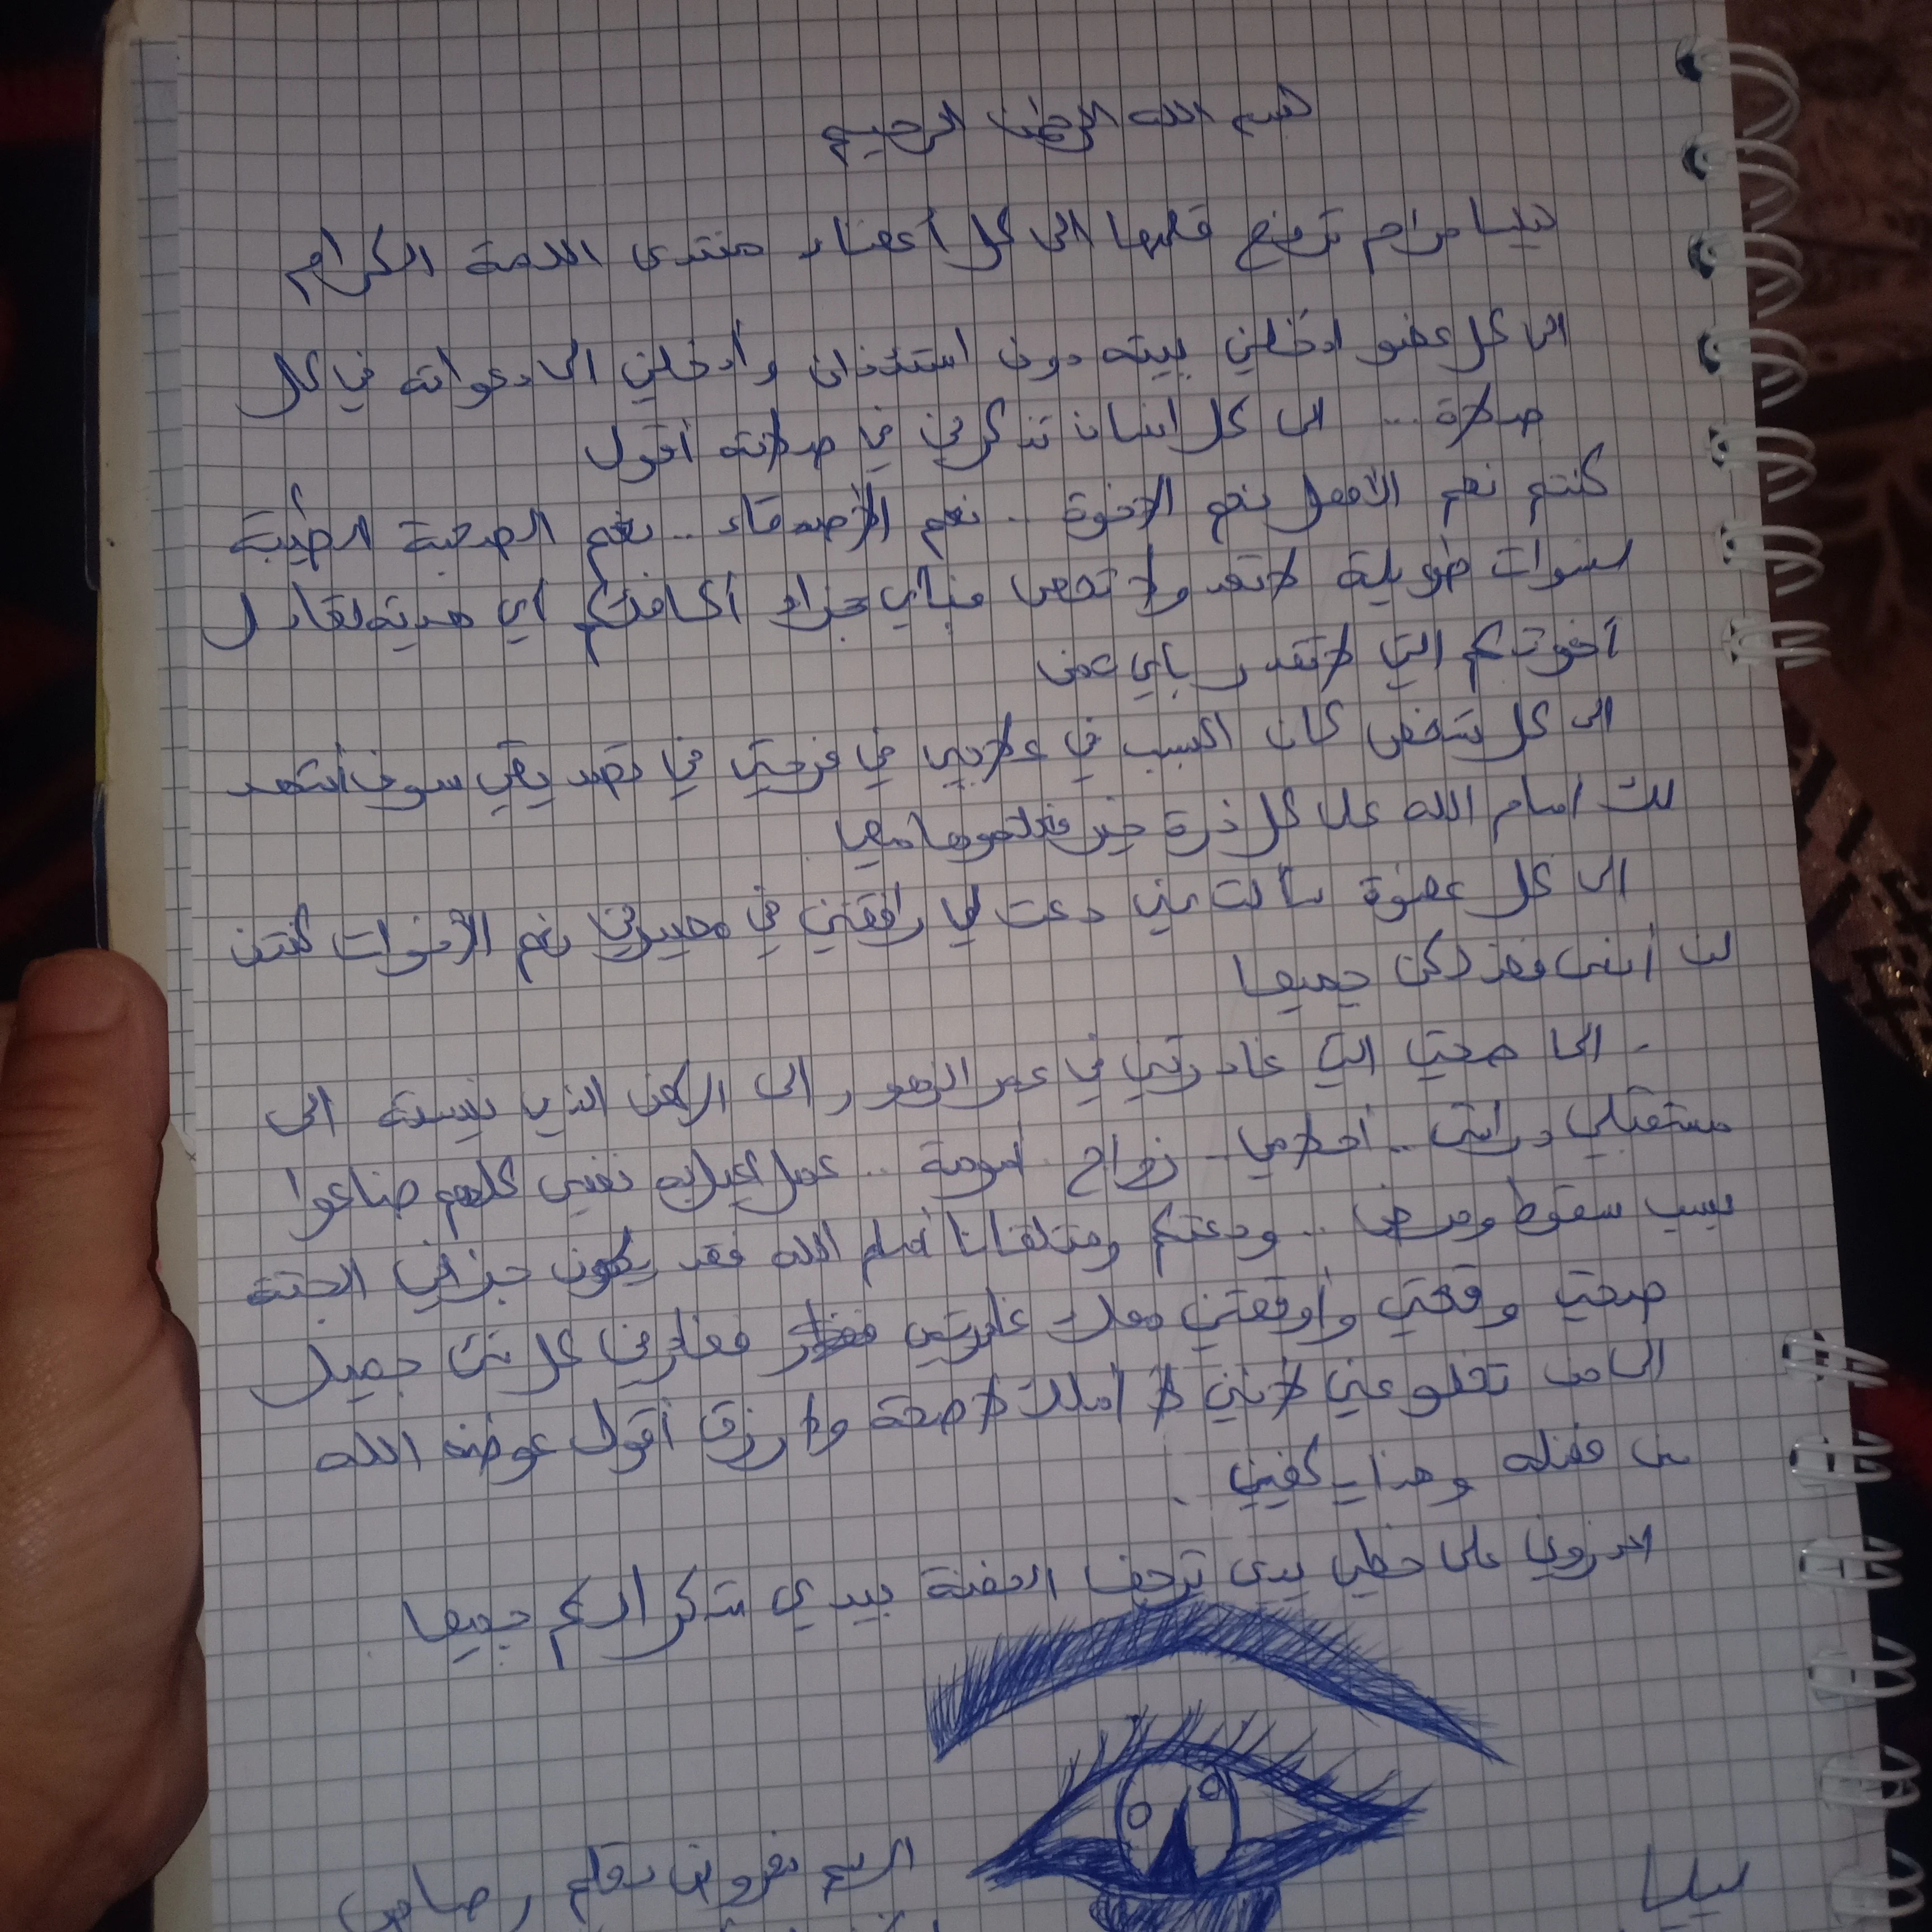 بسم الله الرحمن الرحيم
مرام ترفع قلمها الى كل أعضاء منتدى اللمة الكرام
الى كل عضو ادخلني بيته دون استئذان وأدخلني الى دعواته في كل
صلاة ... الى كل انسان تذكرني في صلاته أقول
كنتم نعم الأهل نعم الإخوة .. نعم الأصدقاء .. نعم الصحبة الطيبة
لسنوات طويلة لا تعد ولا تحصى فبأي جزاء أكافئكم أي هدية تعادل
أخوتكم التي لا تقدر بأي ثمن
الى كل شخص كان السبب في علاجي في فرحتي في سوف أشهد
لك امام الله على كل ذرة خير معي
الى كل عضوة سألت عني دعت لي رافقتني في نعم الأخوات كنتن
لن أنسى جميعا
- الى صحتي التي غادرتني في عمر الزهور الى الذي الى
مستقبلي دراستي .. أحلامي .. زواج أمومة .. عمل نفسي كلهم ضاعوا
بسبب سقوط ومرض .. ودعتكم وملتقانا أمام الله فقد يكون جزائي الجنة
صحتي وقعتي وأوقعتني معك غادرتني فغادرني كل شئ جميل
الى من تخلو عني لأنني لا أملك لا صحة ولا رزق أقول عوضه الله
من فضله وهذا يكفيني .
اعذروني على خطي يدي ترجف الحقنة بيدي شكرا لكم جميعا
الرسم بقلم رصاص